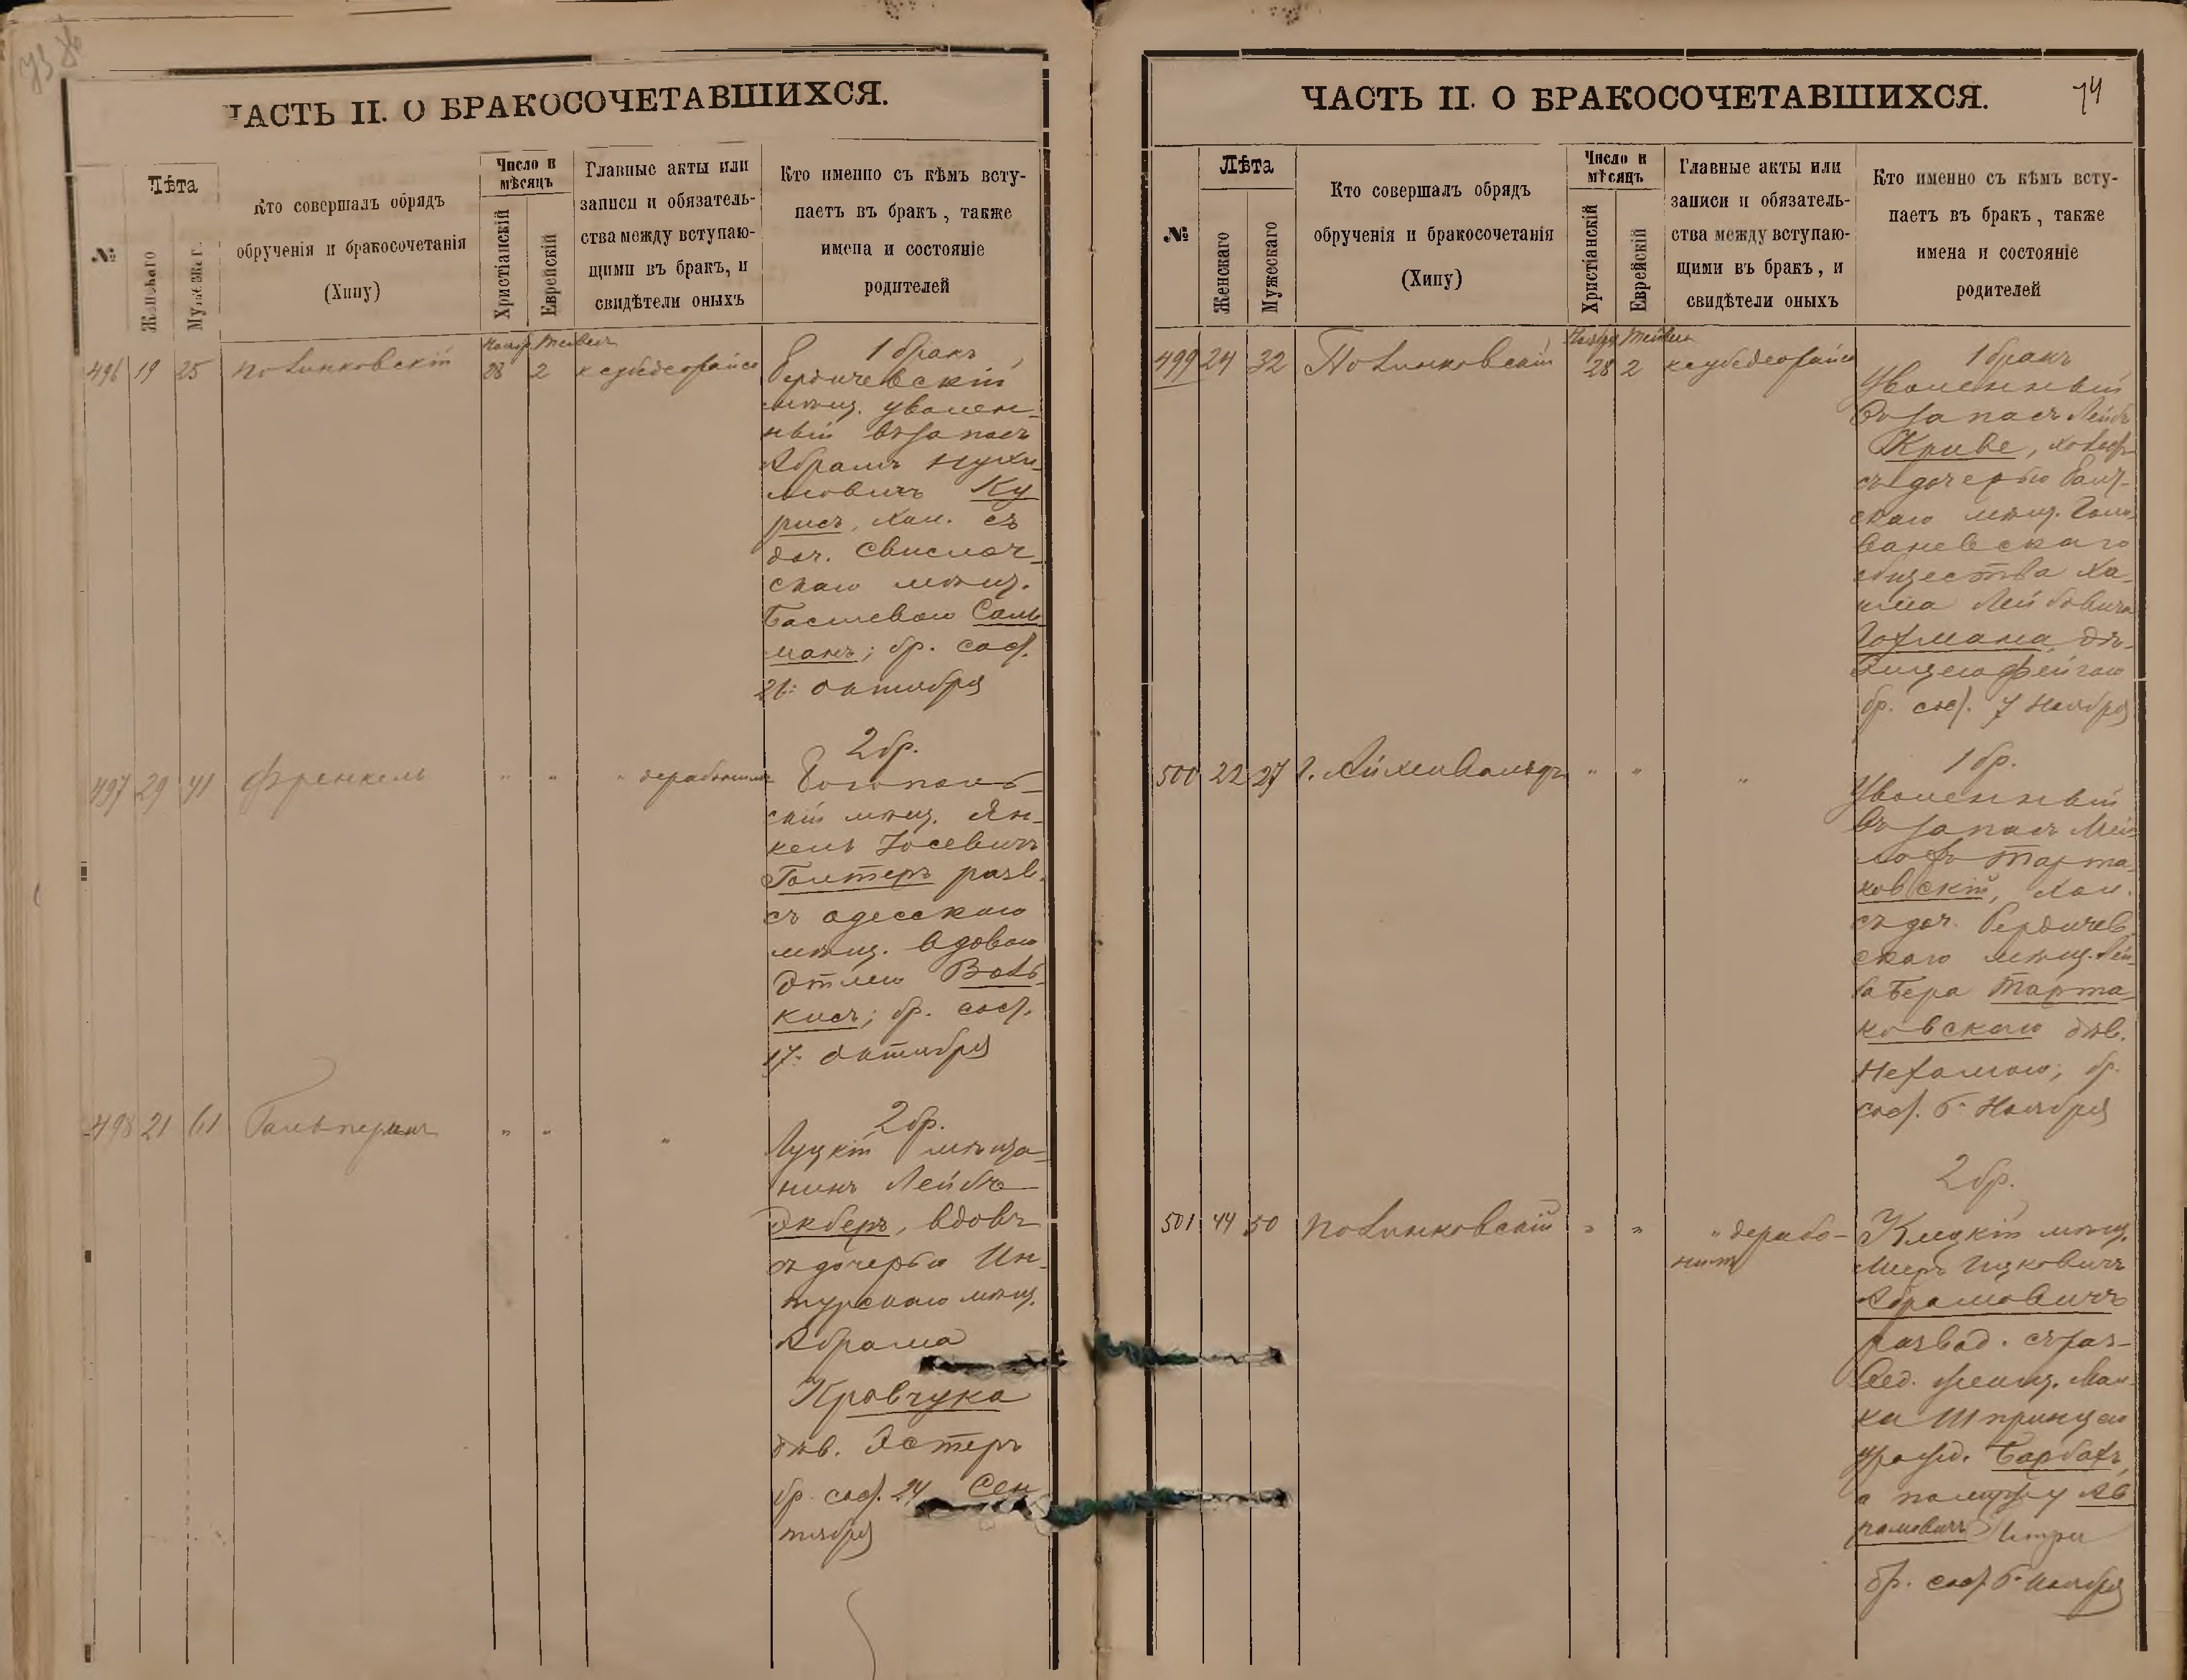 ЧАСТЬ II. О БРАКОСОЧЕТАВШИХСЯ.
№
Лѣта
Женскаго
Мужескаг.
Кто совершалъ обрядъ
обрученія и бракосочетанія
(Хипу)
Число и
мѣсяцъ
Христіанскій
Еврейскій
Главные акты или
записи и обязатель-
ства между вступаю-
щими въ бракъ, и
свидѣтели оныхъ
Кто именно съ кѣмъ всту-
паетъ въ бракъ, также
имена и состояніе
родителей
496 19 25 Полинковскій 28 2
1 бракъ
Бердичевскій
мѣщ. уволен-
ный въ запасъ
Абрамъ Нухи-
мовичъ Ку
рисъ, хол. съ
доч. Свислоч-
скаго мѣщ.
Басшевою Саль-
манъ; бр. сос.
21: октября
497 29 41 Френкель " " "
2 бр.
Богополь-
скій мѣщ. Ян-
кель Іосевичъ
Голтеръ разв.
съ одесскою
мѣщ. вдовою
кисъ; бр. сос.
17: октября
498 21 61 Гальперинъ " " "
2 бр.
Луцкій мѣща-
нинъ Лейба
Экберъ, вдовъ
съ дочерью Ин-
турскаго мѣщ.
Абрама
Кравчука
дѣв. Эстеръ
бр. сос. 24 Сен
тября
ЧАСТЬ II. О БРАКОСОЧЕТАВШИХСЯ.
74
№
Лѣта
Женскаго
Мужескаго
Кто совершалъ обрядъ
обрученія и бракосочетанія
(Хипу)
Число и
мѣсяцъ
Христіанскій
Еврейскій
Главные акты или
записи и обязатель-
ства между вступаю-
щими въ бракъ, и
свидѣтели оныхъ
Кто именно съ кѣмъ всту-
паетъ въ бракъ, также
имена и состояніе
родителей
499 24 32 Полинковскій 28 2
1 бракъ
Уволенный
въ запасъ Лейбъ
Криве, холост
съ дочерью Балт-
скаго мѣщ. Голо-
ваневскаго
общества Ха-
има Лейбовича
Гохмана дѣ-
бр. сос. 7 Ноября
500 22 27 Г. Айхенвальдъ " " "
1 бр.
Уволенный
въ запасъ
Тарта-
ковскій, хол.
съ доч. Бердичев-
скаго мѣщ. Лей-
ба Бера Тарта-
ковскаго дѣв.
Нехамою; бр.
сос. 6: Ноября
501 44 50 Полинковскій " " "
2 бр.
Клецкій мѣщ.
Мееръ Ицковичъ
Абрамовичъ
развод. съ раз-
вед. женщ. Мал-
ка Шпринцею
урожд. Барбахъ,
а по мужу Аб
рамовичъ
бр. сос. 6: Ноября